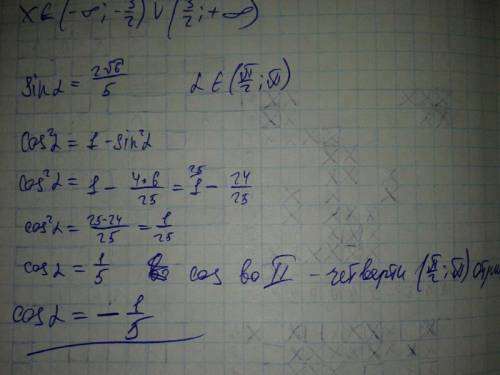 x ∈ (-∞; -3/2) ∪ (3/2; +∞)
sin α = 2√6/5   α ∈ (π/2; π)
cos²α = 1 - sin²α
cos²α = 1 - 4*6/25 = 1 - 24/25
cos²α = 25-24/25 = 1/25
cos α = 1/5   cos во II - четверти (π/2; π) отри
cos α = - 1/5